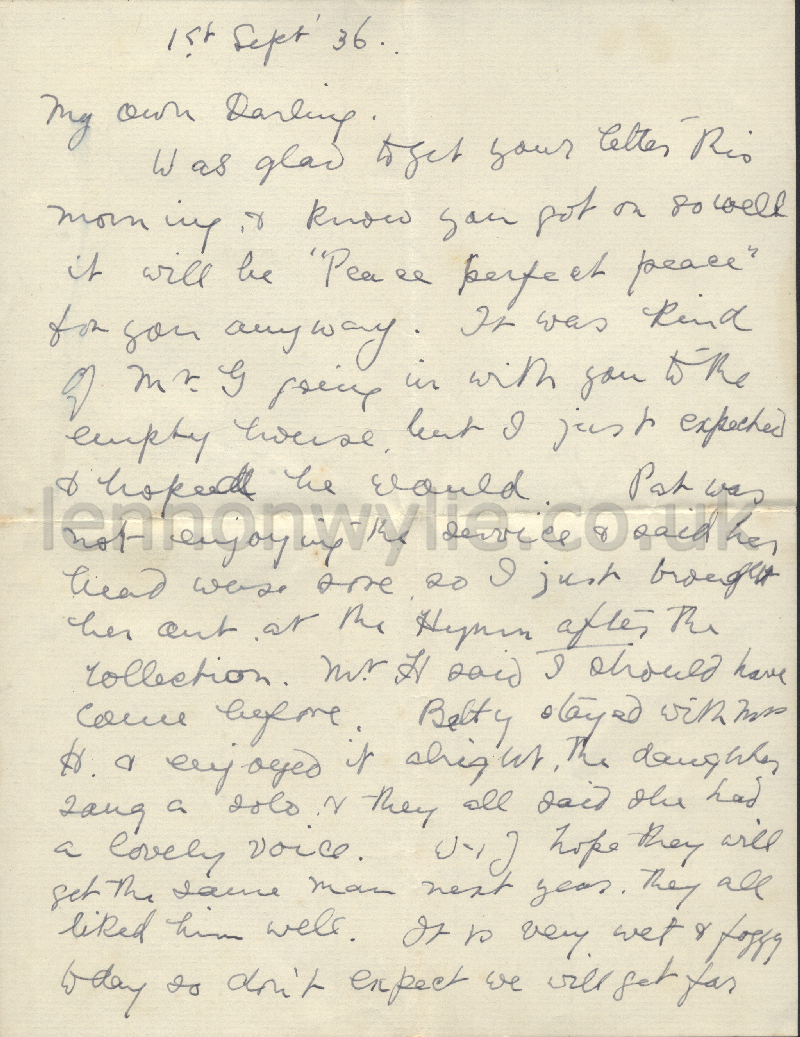 1st Sept '36.
My own Darling.
Was glad to get your letter this
morning, & know you got on so well
it will be "Peace perfect peace"
for you anyway. It was kind
of Mr. G going in with you to the
empty house, but I just expected
& hoped he would. Pat was
not enjoying the service & said her
head was sore, so I just brought
her out at the Hymn after the
collection. Mr. H said I should have
come before. Betty stayed with Mrs
H. & enjoyed it alright, the daughter
sang a solo & they all said she had
a lovely voice. W & J hope they will
get the same man next year, they all
liked him well. It is very wet & foggy
today so don't expect we will get far
lennonwylie.co.uk